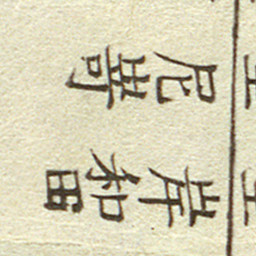 岸和田
尼嵜